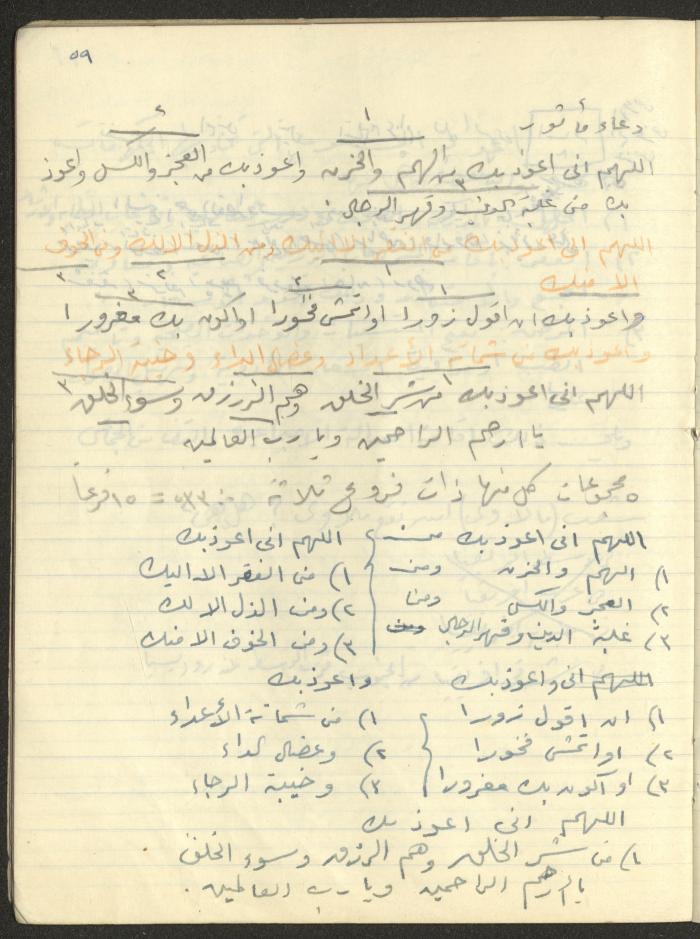 ٥٩
دعاء مأثور
١ ٢
اللهم انى اعوذ بك من الهم والحزن واعوذ بك من العجز والكسل واعوذ
٣
بك من غلبة الدين وقهر الرجال .
اللهم انى اعوذ بك من الفقر الا اليك ومن الذل الا لك ومن الخوف
الا منك ١ ٢ ٣
١ ٢ ٣
واعوذ بك ان اقول زورا او اتمشى فخورا او اكون بك مغرورا
واعوذ بك من شماتة الأعداء وعضال الداء وخيبة الرجاء
اللهم انى اعوذ بك ١ من شر الخلق وهم الرزق وسوء الخلق ٣
يا ارحم الراحمين ويا رب العالمين
٥ مجموعات كل منها ذات فروع ثلاثة = ١٥ فرعاً
اللهم انى اعوذ بك من اللهم انى اعوذ بك
١) الهم والحزن ومن ١) من الفقر الا اليك
٢) العجز والكسل ومن ٢) ومن الذل الا لك
٣) غلبة الدين وقهر الرجال ومن ٣) ومن الخوف الا منك
اللهم انى واعوذ بك واعوذ بك
١) ان اقول زورا ١) من شماتة الأعداء
٢) او اتمشى فخورا ٢) وعضال الداء
٣) او اكون بك مغرورا ٣) وخيبة الرجاء
اللهم انى اعوذ بك
١) من شر الخلق وهم الرزق وسوء الخلق
يا ارحم الراحمين ويا رب العالمين .